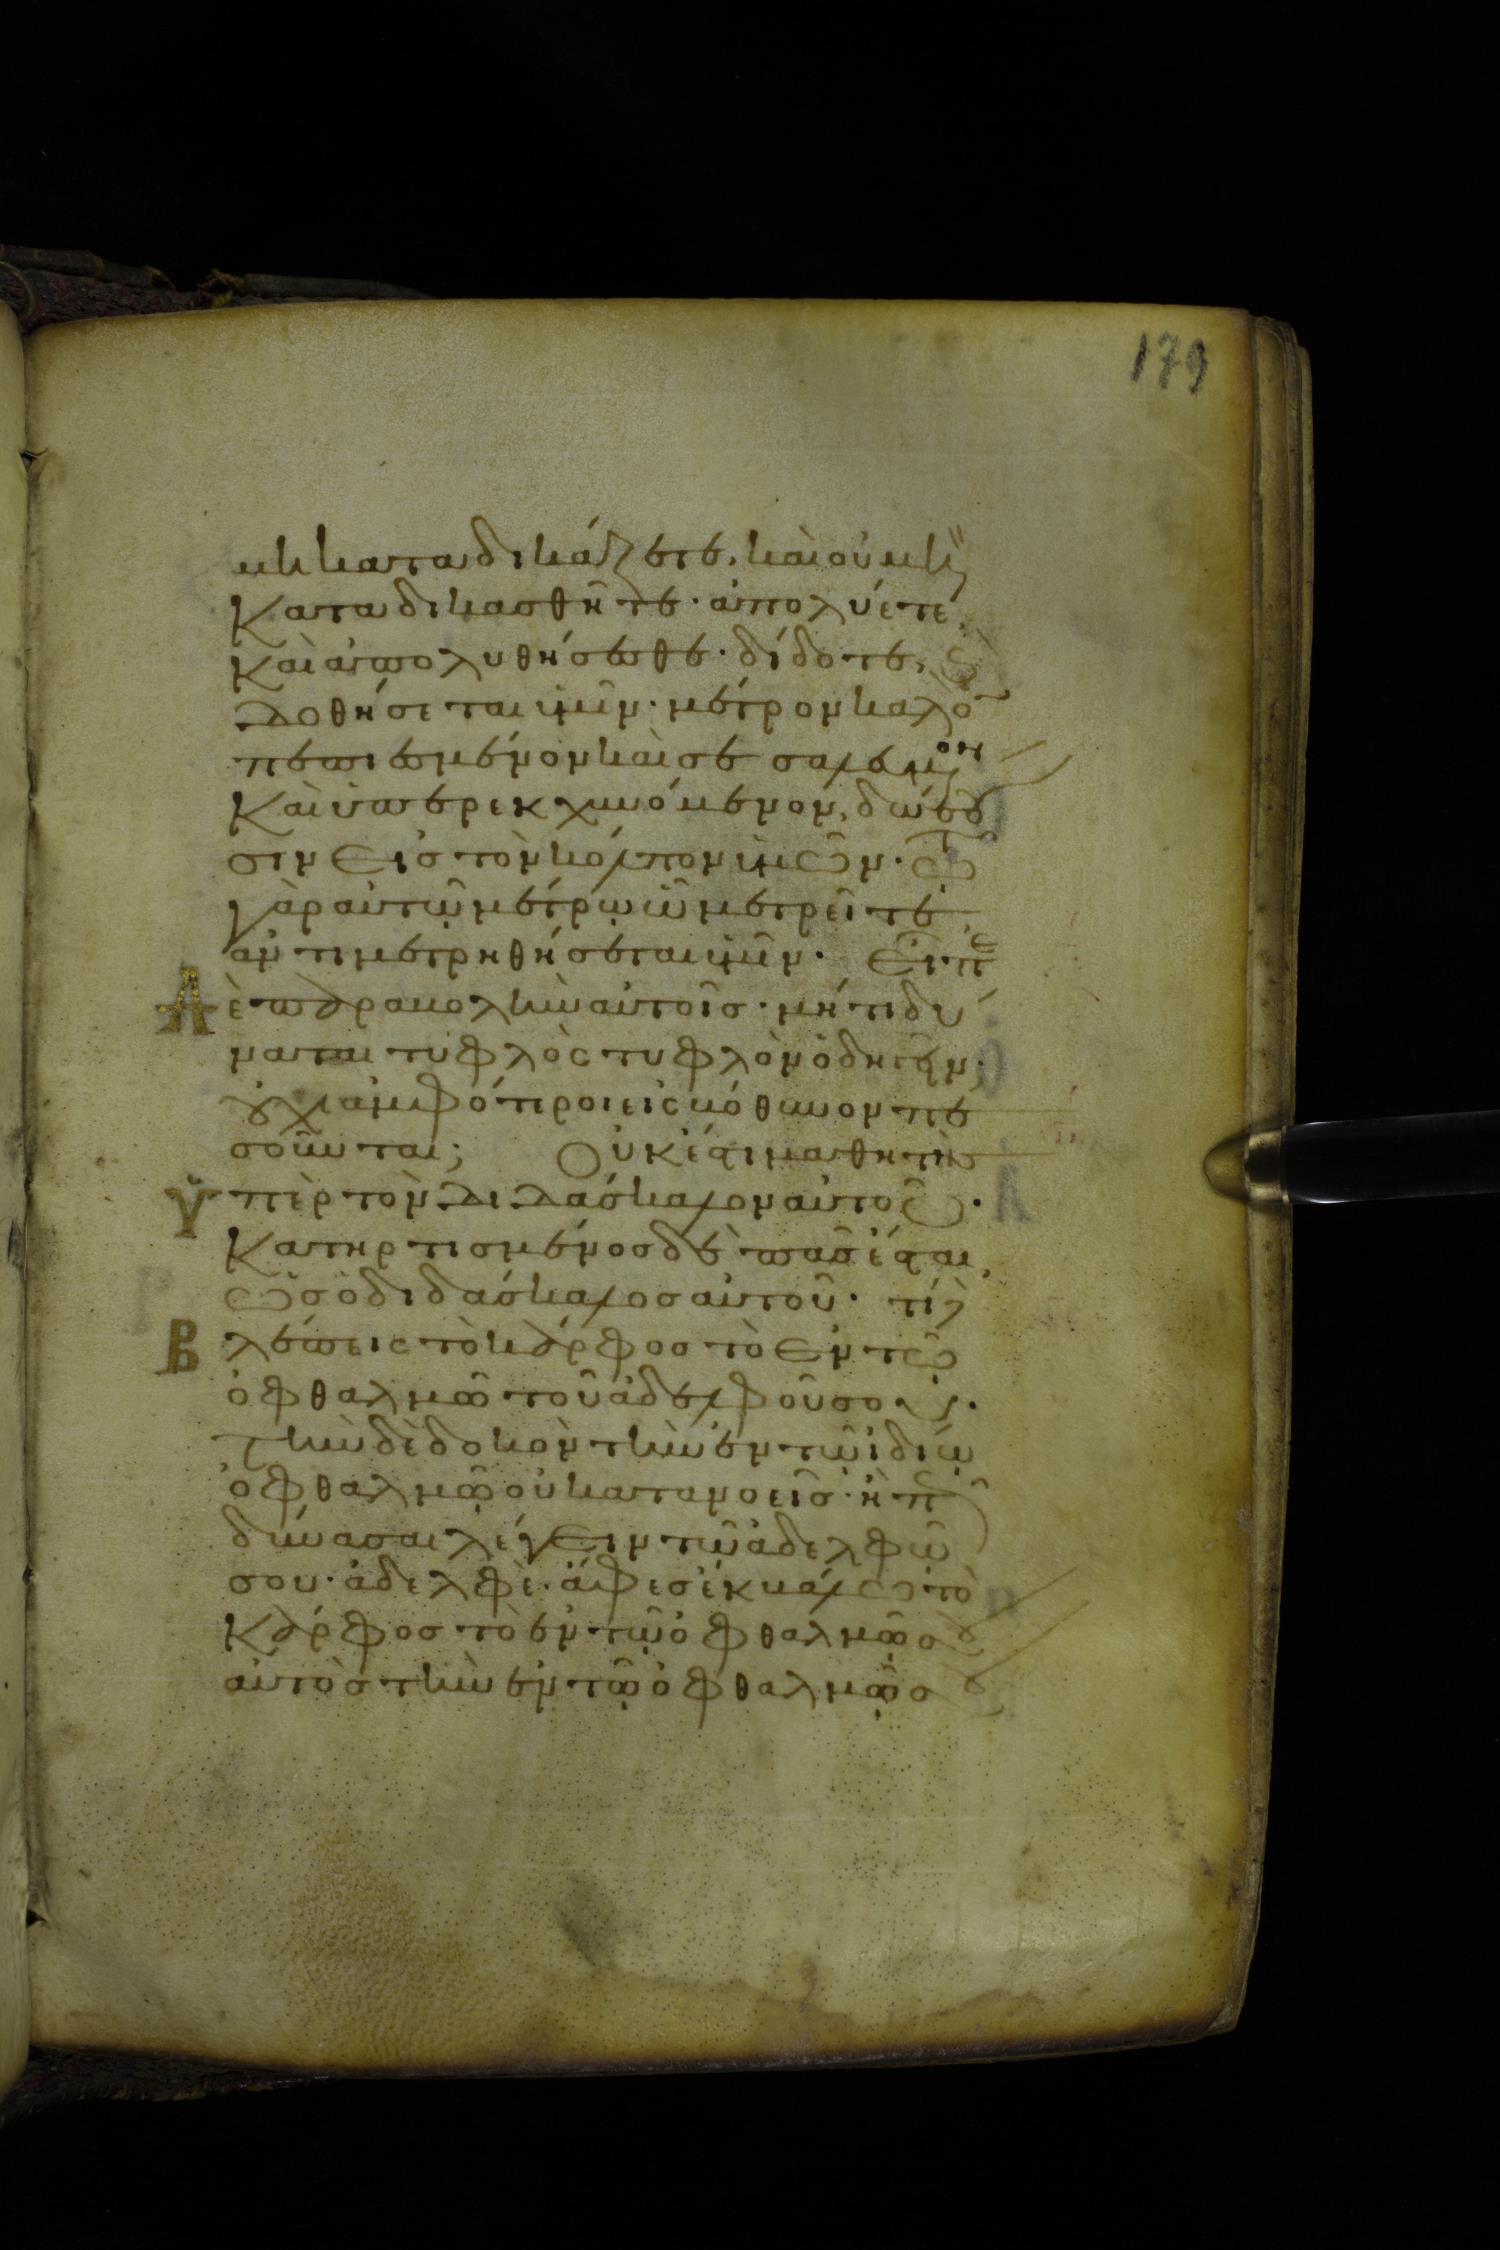 179
μὴ καταδικάζετε, καὶ οὐ μὴ
καταδικασθῆτε· ἀπολύετε,
καὶ ἀπολυθήσεσθε· δίδοτε, καὶ
δοθήσεται ὑμῖν· μέτρον καλὸν
πεπιεσμένον καὶ σεσαλευμένον
καὶ ὑπερεκχυνόμενον, δώσου
σιν εἰς τὸν κόλπον ὑμῶν· τῷ
γὰρ αὐτῷ μέτρῳ ᾧ μετρεῖτε
ἀντιμετρηθήσεται ὑμῖν· Εἶπε
Δὲ παραβολὴν αὐτοῖς· μήτι δύ
ναται τυφλὸς τυφλὸν ὁδηγεῖν;
οὐχὶ ἀμφότεροι εἰς βόθυνον πε
σοῦνται; Οὐκ ἔστι μαθητὴς
ὑπὲρ τὸν διδάσκαλον αὐτοῦ·
κατηρτισμένος δὲ πᾶς ἔσται,
ὡς ὁ διδάσκαλος αὐτοῦ· τί
βλέπεις τὸ κάρφος τὸ ἐν τῷ
ὀφθαλμῷ τοῦ ἀδελφοῦ σου·
τὴν δὲ δοκὸν τὴν ἐν τῷ ἰδίῳ
ὀφθαλμῷ οὐ κατανοεῖς· ἢ πῶς
δύνασαι λέγειν τῷ ἀδελφῷ
σου· ἀδελφὲ· ἄφες ἐκβάλω τὸ
κάρφος τὸ ἐν τῷ ὀφθαλμῷ σου
αὐτὸς τὴν ἐν τῷ ὀφθαλμῷ σου